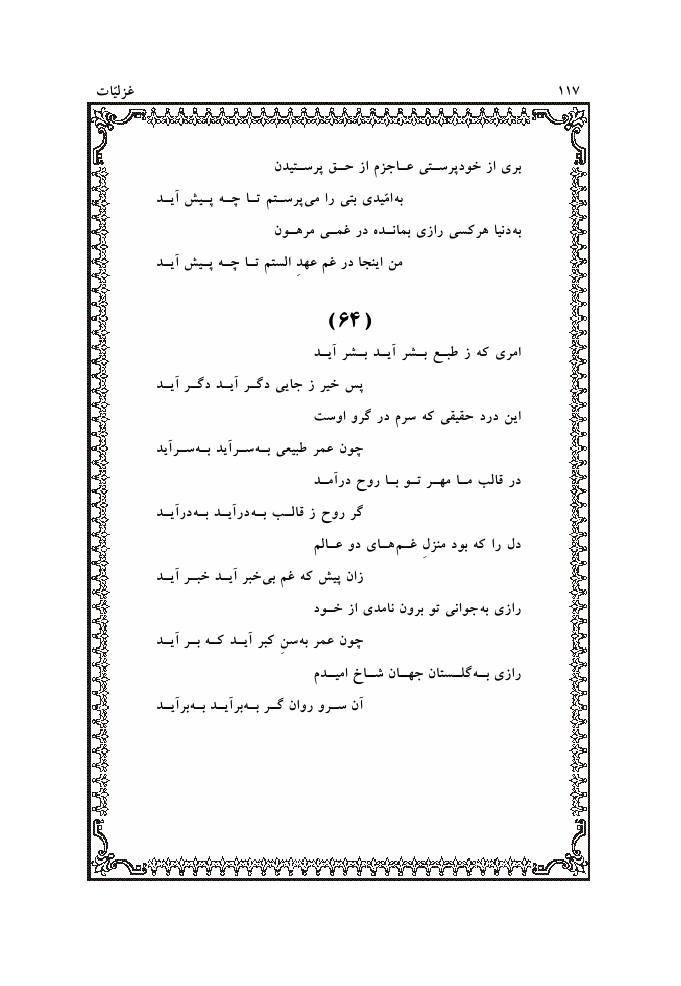 ۱۱۷ غزلیّات
بری از خودپرستی عاجزم از حق پرستیدن
به‌امّیدی بتی را می‌پرستم تا چه پیش آید
به‌دنیا هرکسی رازی بمانده در غمی مرهون
من اینجا در غم عهدِ الستم تا چه پیش آید
(۶۴)
امری که ز طبع بشر آید بشر آید
پس خیر ز جایی دگر آید دگر آید
این درد حقیقی که سرم در گرو اوست
چون عمر طبیعی به‌سرآید به‌سرآید
در قالب ما مهر تو با روح درآمد
گر روح ز قالب به‌درآید به‌درآید
دل را که بود منزلِ غم‌های دو عالم
زان پیش که غم بی‌خبر آید خبر آید
رازی به‌جوانی تو برون نامدی از خود
چون عمر به‌سنِ کبر آید که بر آید
رازی به‌گلستان جهان شاخ امیدم
آن سرو روان گر به‌برآید به‌برآید